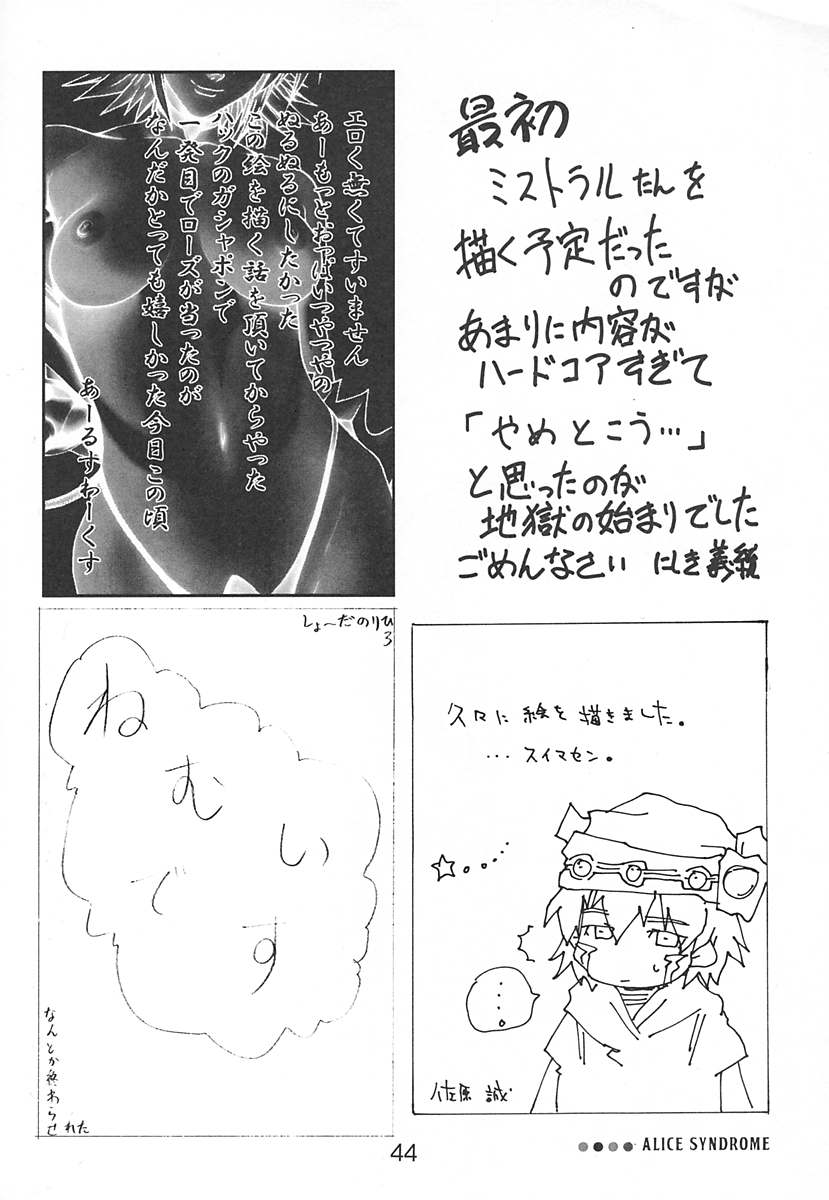 最初
ミストラルたんを
描く予定だった
のですが
あまりに内容が
ハードコアすぎて
「やめとこう…」
と思ったのが
地獄の始まりでした
ごめんなさい にしき義統
エロく無くてすいません
あーもっとおっぱいつやつやの
ぬるぬるにしたかった
この絵を描く話を頂いてからやった
ハックのガシャポンで
一発目でローズが当ったのが
なんだかとっても嬉しかった今日この頃
あーるすわーくす
しょ〜だのりひろ
ねむいです
なんとか終わらせれた
久々に絵を描きました。
…スイマセン。
…。
佐原 誠
44
ALICE SYNDROME